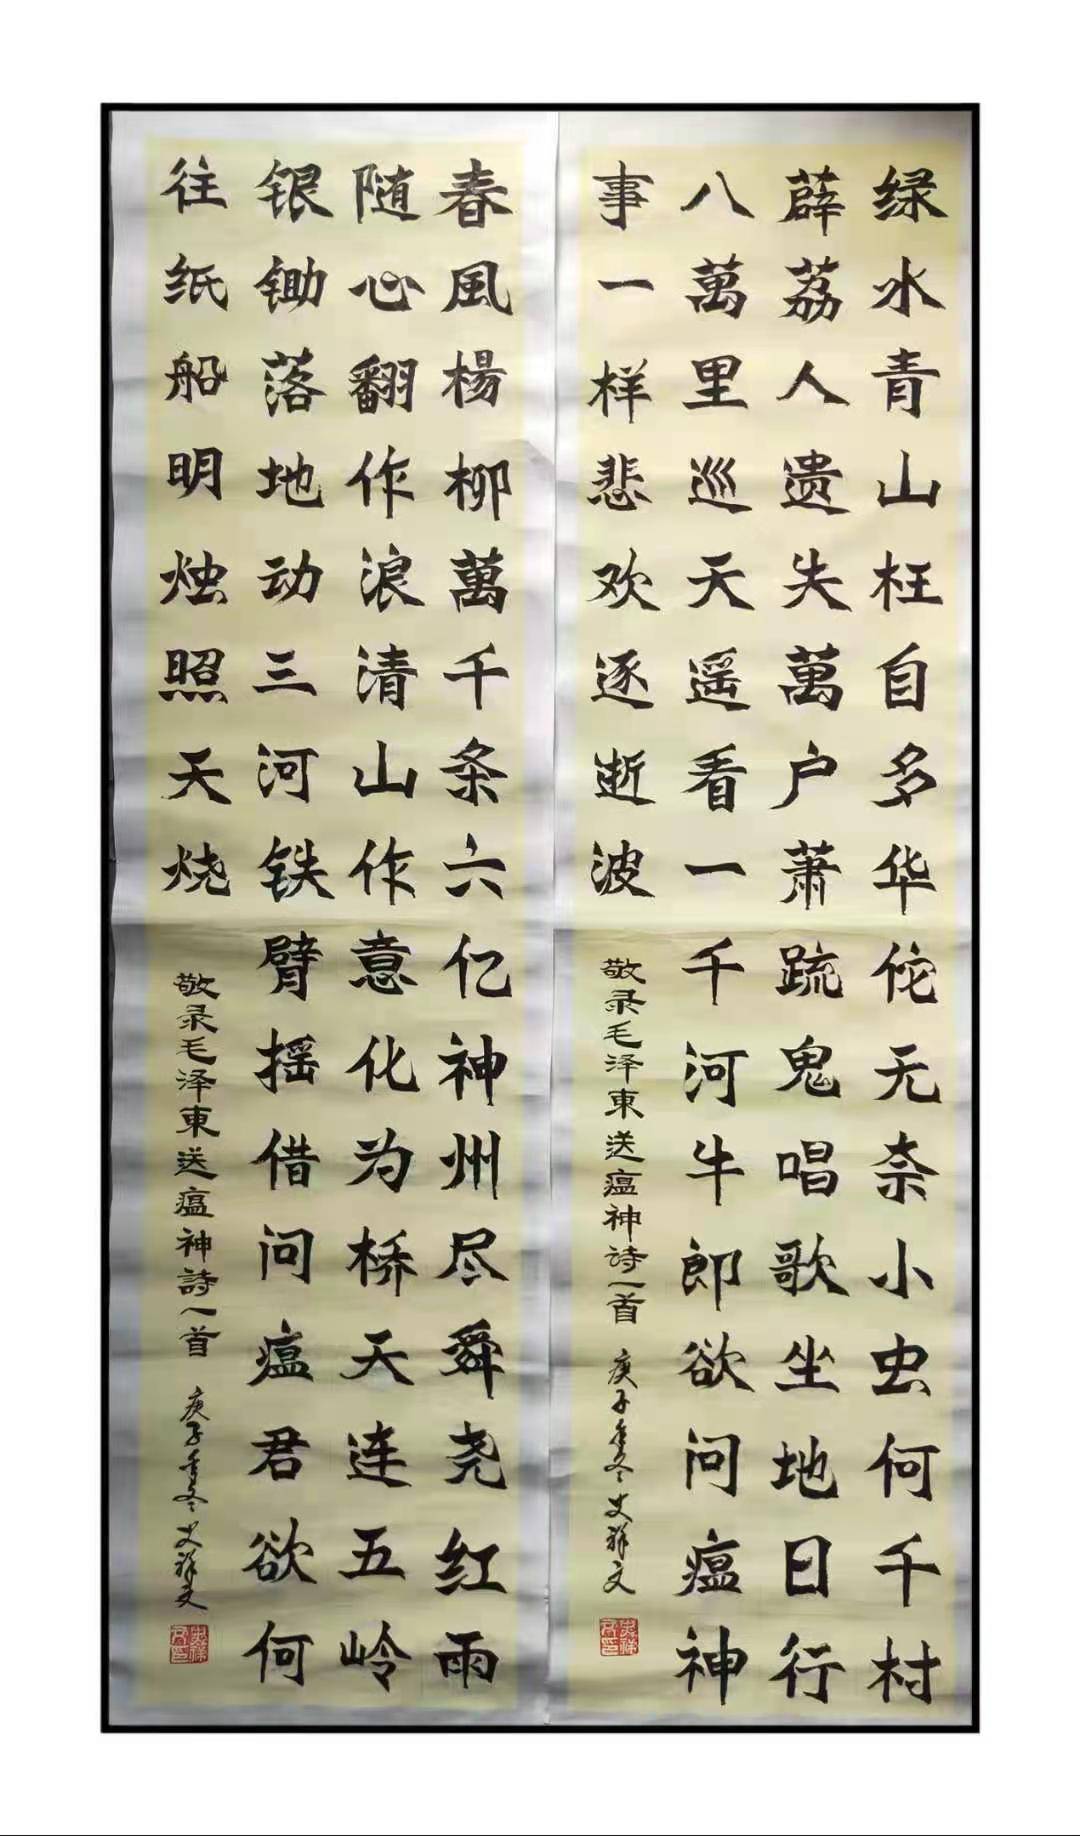 绿水青山枉自多华佗无奈小虫何千村
薜荔人遗失萬户萧疏鬼唱歌坐地日行
八萬里巡天遥看一千河牛郎欲问瘟神
事一样悲欢逐逝波
敬录毛泽東送瘟神诗一首 庚子年冬 史祥文
春風楊柳萬千条六亿神州尽舜尧红雨
随心翻作浪清山作意化为桥天连五岭
银锄落地动三河铁臂摇借问瘟君欲何
往纸船明烛照天烧
敬录毛泽東送瘟神詩一首 庚子年冬 史祥文